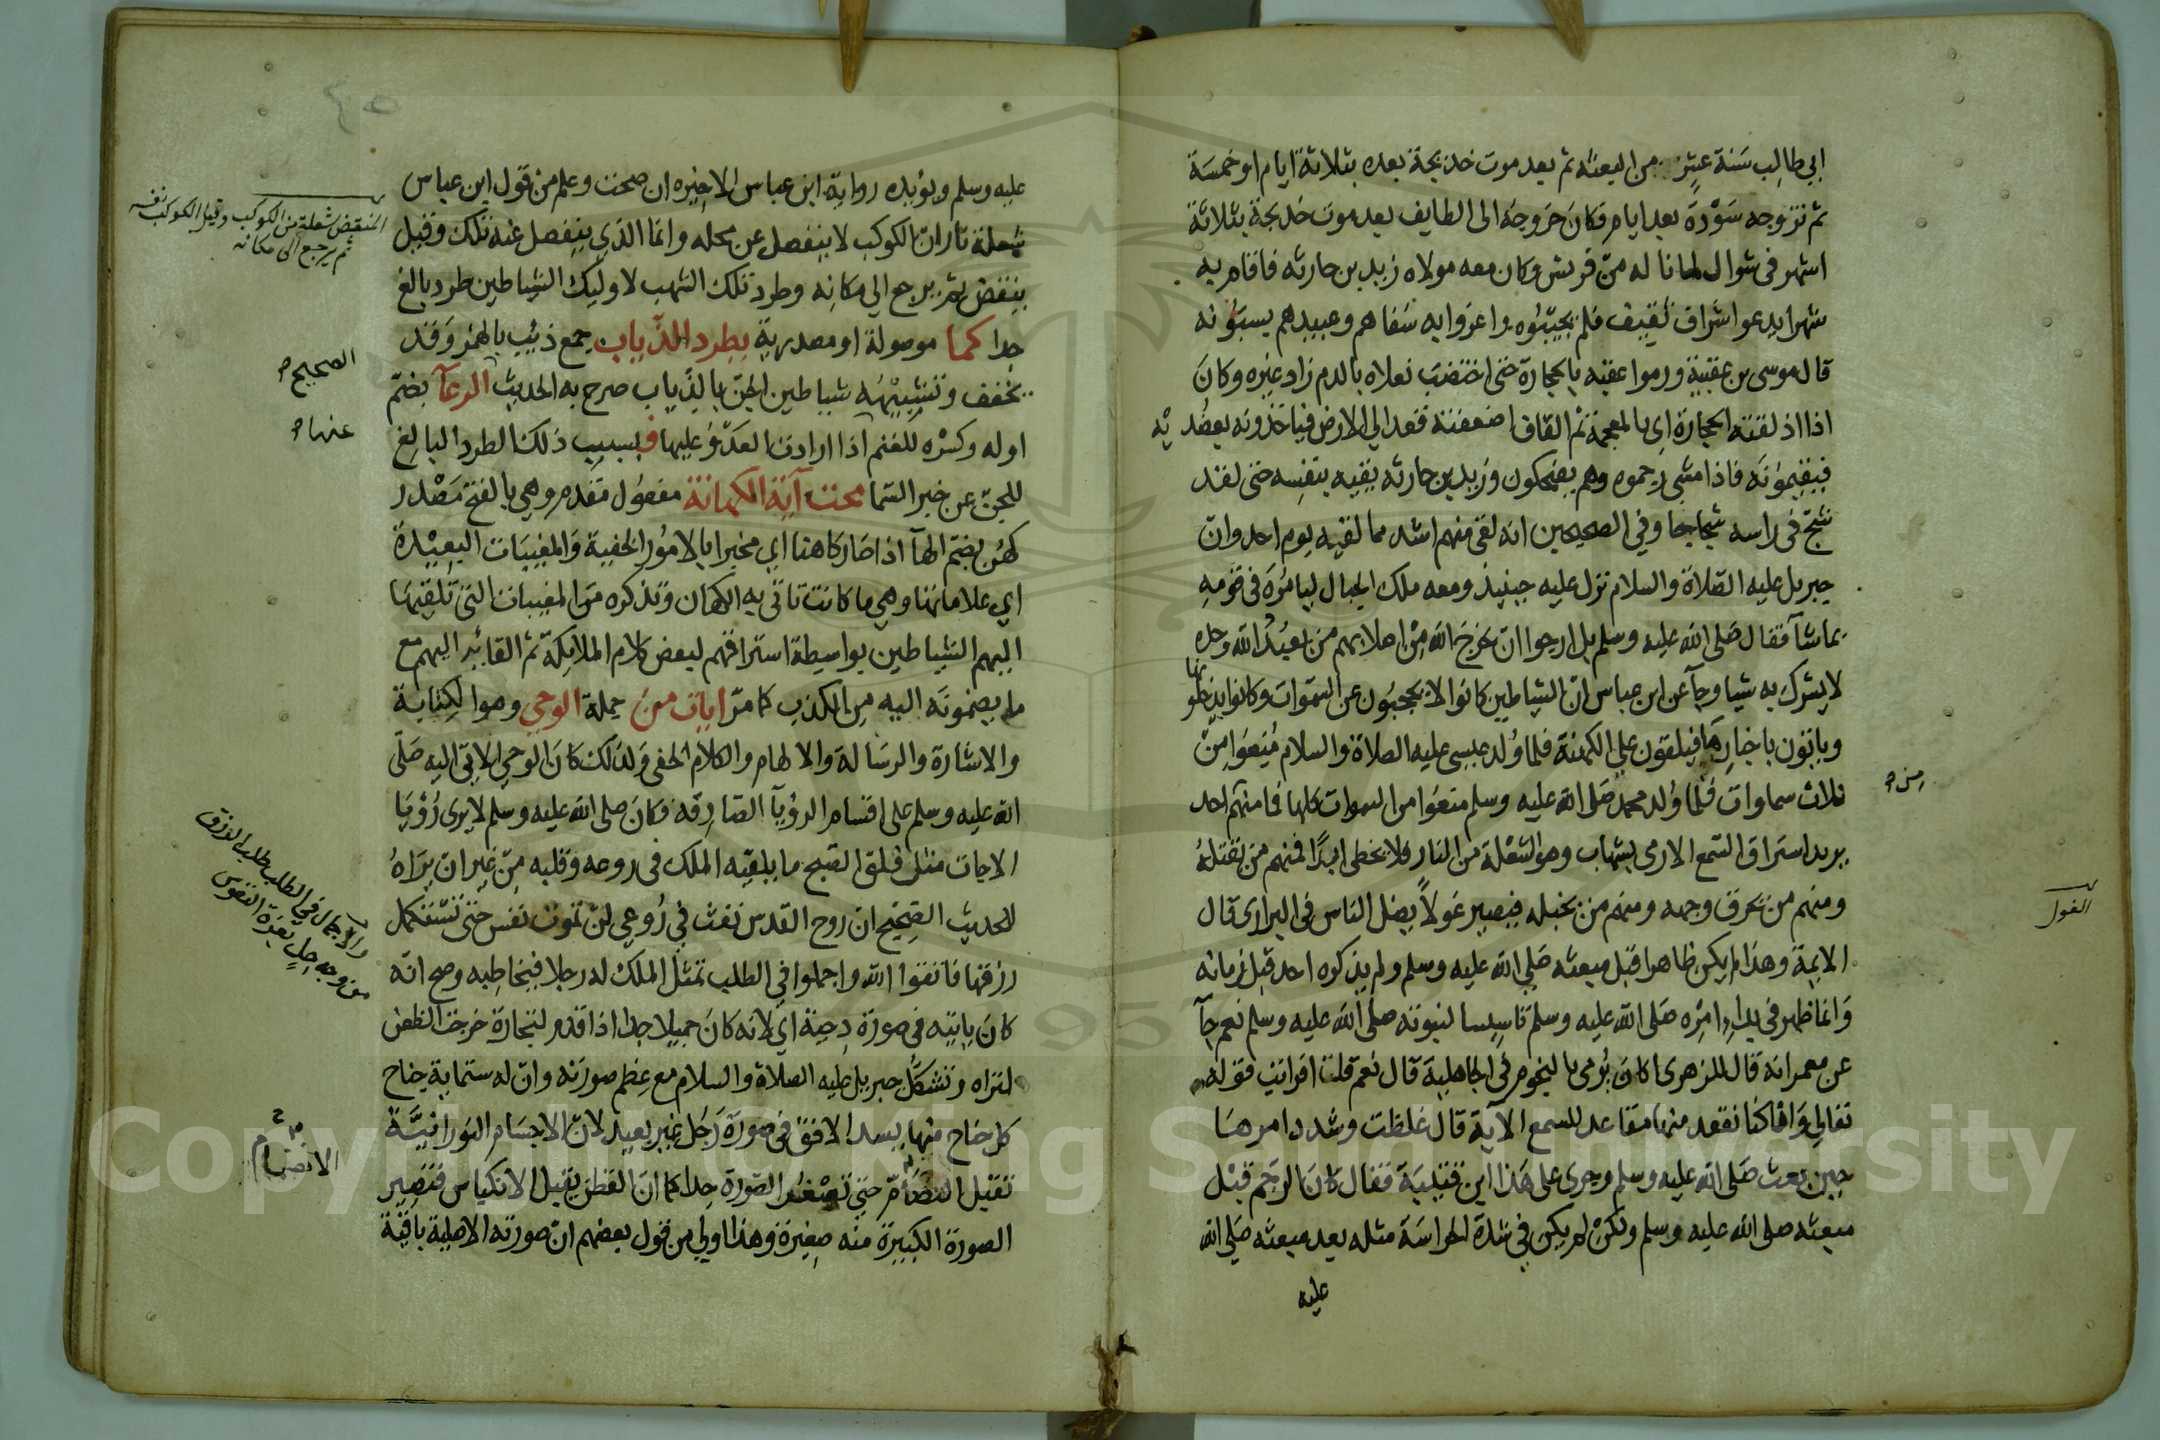 ابي طالب سنة عشر من البعثة ثم بعد موت خديجة بعده بثلاثة ايام او خمسة
ثم تزوجه سودة بعد ايام فكان خروجه الى الطايف بعد موت خديجة بثلاثة
اشهر في شوال لما ناله من قريش وكان معه مولاه زيد بن حارثه فاقام به
شهرا يدعو اشراف ثقيف فلم يجيبوه واغروا به سفاهم وعبيدهم يسبونه
قال موسى بن عقبة ورموا عقبه بالحجارة حتى اختضب نعلاه بالدم زاد غيره وكان
اذا اذلقته الحجارة اي بالمعجمة ثم القاف اضعفته قعد الى الارض فياخذونه بعضديه
فيقيمونه فاذا مشى رجموه وهم يضحكون وزيد بن حارثه يقيه بنفسه حتى لقد
شج في راسه شجاجا وفي الصحيحين انه لقي منهم اشد مما لقيه يوم احد وان
جبريل عليه الصلاة والسلام نزل عليه حينيذ ومعه ملك الجبال ليامره في قومه
بما شآ فقال صلى الله عليه وسلم بل ارجوا ان يخرج الله من اصلابهم من يعبد الله وحده
لا يشرك به شيا وجآ عن ابن عباس ان الشياطين كانوا لا يحجبون عن السموات وكانوا يدخلونها
وياتون باخبارها فيلقون على الكهنة فلما ولد عيسى عليه الصلاة والسلام منعوا من
ثلاث سماوات فلما ولد محمد صلى الله عليه وسلم منعوا من السموات كلها فما منهم احد
يريد استراق السمع الا رمى بشهاب وهو الشعلة من النار فلا يخطى ابدا فمنهم من تقتله
ومنهم من تحرق وجهه ومنهم من تخبله فيصير غولا يضل الناس في البراري قال
الايمة وهذا لم يكن ظاهرا قبل مبعثه صلى الله عليه وسلم ولم يذكره احد قبل زمانه
وانما ظهر في بدء امره صلى الله عليه وسلم تاسيسا لنبوته صلى الله عليه وسلم نعم جآ
عن معمر انه قال للزهرى اكان يرمى بالنجوم في الجاهلية قال نعم قلت افرايت قوله
تعالى وانا كنا نقعد منها مقاعد للسمع الاية قال غلظت وشدد امرها
حين بعث صلى الله عليه وسلم وجرى على هذا ابن قتيبة فقال كان الرجم قبل
مبعثه صلى الله عليه وسلم ولكن لم يكن في شدة الحراسة مثله بعد مبعثه صلى الله
عليه
من
الغول
عليه وسلم ويؤيده رواية ابن عباس الاخيره ان صحت وعلم من قول ابن عباس
شعلة نار ان الكوكب لا ينفصل عن محله وانما الذي ينفصل عنه تلك وقيل
ينقض ثم يرجع الى مكانه وطرد تلك الشهب لاوليك الشياطين طرد بالغ
جدا كما موصولة او مصدرية يطرد الذياب جمع ذئب بالهمز وقد
يخفف وتشبيهه شياطين الجن بالذياب صرح به الحديث الرعآ بضم
اوله وكسره للغنم اذا ارادت العدو عليها فبسبب ذلك الطرد البالغ
للجن عن خبر السما محت آية الكهانة مفعول مقدم وهي بالفتح مصدر
كهن بضم الهآ اذا صار كاهنا اي مخبرا بالامور الخفية والمغيبات البعيدة
اي علاماتها وهي ما كانت تاتي به الكهان وتذكره من المغيبات التي تلقيها
اليهم الشياطين بواسطة استراقهم لبعض كلام الملايكة ثم القائه اليهم مع
ما يضمونه اليه من الكذب كما مر ايات من جملة الوحي وهو الكتابة
والاشارة والرسالة والالهام والكلام الخفي ولذلك كان الوحي الاتي اليه صلى
الله عليه وسلم على اقسام الرؤيآ الصادقه فكان صلى الله عليه وسلم لا يرى رؤيا
الا جات مثل فلق الصبح ما يلقيه الملك في روعه وقلبه من غير ان يراه
للحديث الصحيح ان روح القدس نفث في روعي لن تموت نفس حتى تستكمل
رزقها فاتقوا الله واجملوا في الطلب تمثل الملك له رجلا فيخاطبه وصح انه
كان ياتيه في صورة دحية اي لانه كان جميلا جدا اذا قدم لتجارة خرجت الظعن
لتراه وتشكل جبريل عليه الصلاة والسلام مع عظم صورته وان له ستماية جناح
كل جناح منها يسد الافق في صورة رجل غير بعيد لان الاجسام النورانية
تقبل الانضمام حتى تصغر الصورة جدا كما ان القطن يقبل الانكباس فتصير
الصورة الكبيرة منه صغيرة وهذا اولى من قول بعضهم ان صورته الاصلية باقية
المنقض شعلة من الكوكب وقيل الكوكب نفسه
ثم يرجع الى مكانه
الصحيح
عنها
والاجمال في الطلب طلب الرزق
من وجه حل بعزة النفوس
الانضمام
٤٥
Copyright © King Saud University
1957